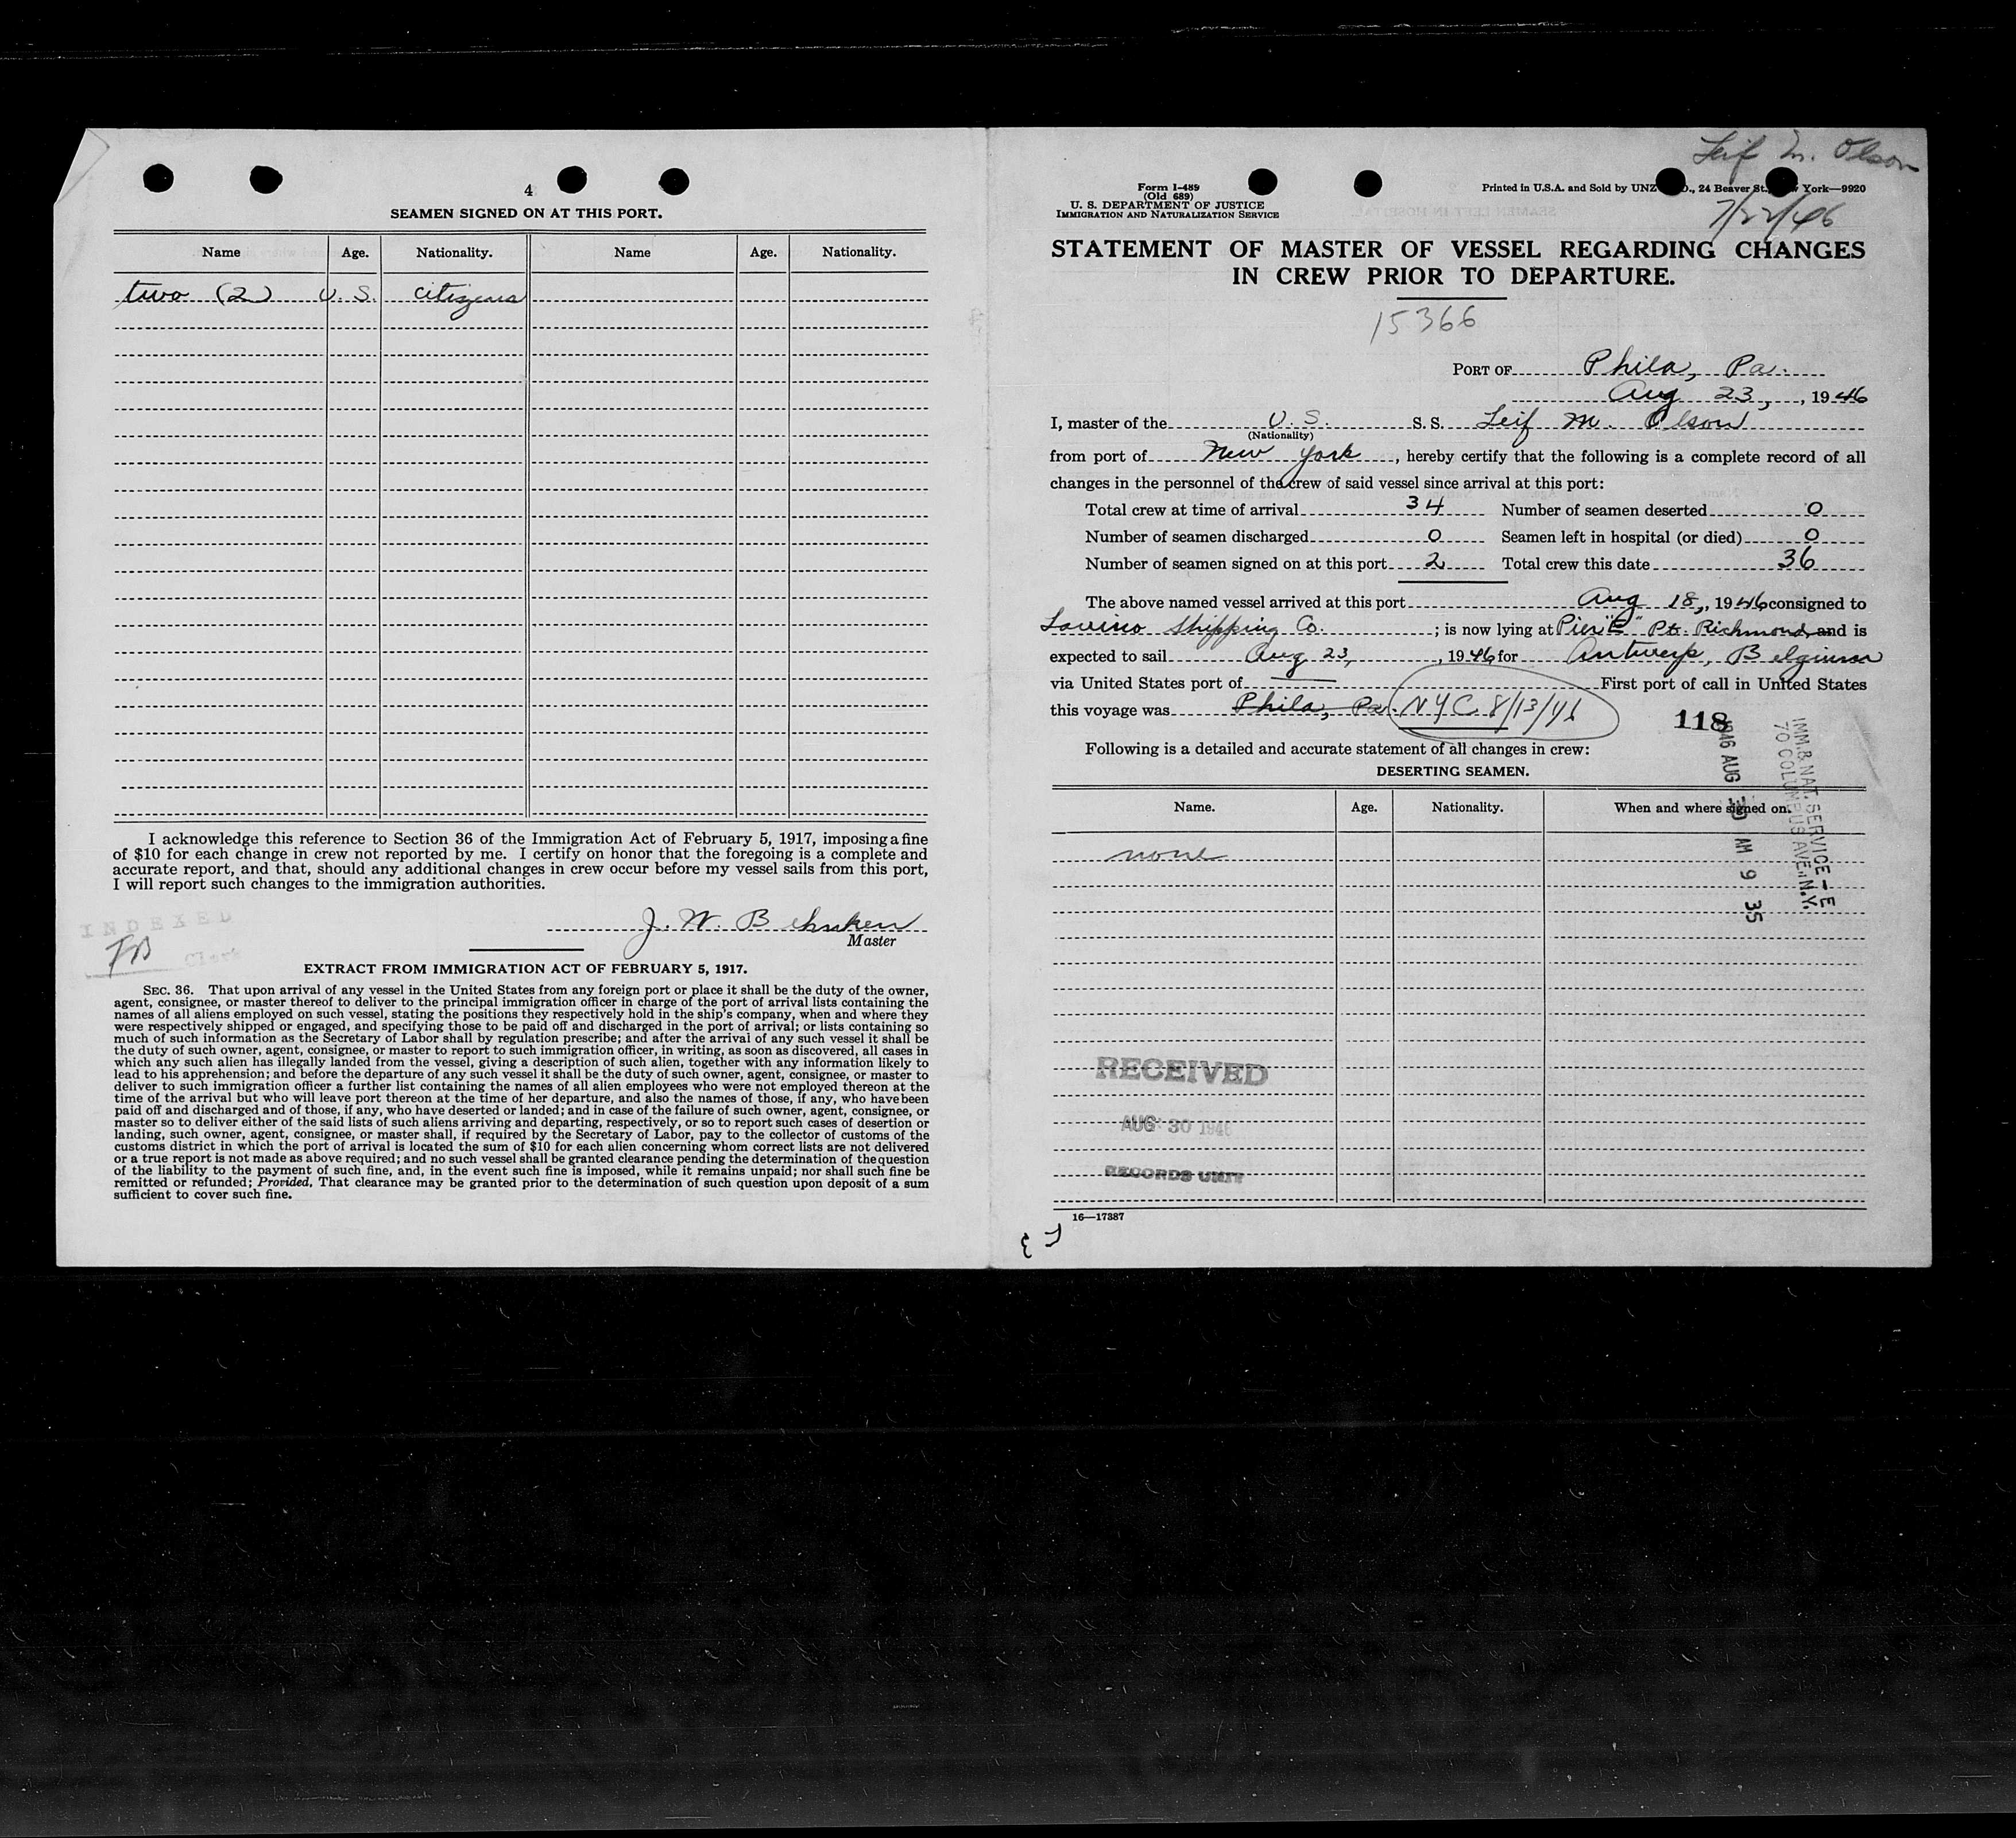 4
SEAMEN SIGNED ON AT THIS PORT.
Name Age. Nationality. Name Age. Nationality.
two (2) U. S. citizens
I acknowledge this reference to Section 36 of the Immigration Act of February 5, 1917, imposing a fine
of $10 for each change in crew not reported by me. I certify on honor that the foregoing is a complete and
accurate report, and that, should any additional changes in crew occur before my vessel sails from this port,
I will report such changes to the immigration authorities.
INDEXED
J. W. Behnken
Master
Clerk
EXTRACT FROM IMMIGRATION ACT OF FEBRUARY 5, 1917.
SEC. 36. That upon arrival of any vessel in the United States from any foreign port or place it shall be the duty of the owner,
agent, consignee, or master thereof to deliver to the principal immigration officer in charge of the port of arrival lists containing the
names of all aliens employed on such vessel, stating the positions they respectively hold in the ship's company, when and where they
were respectively shipped or engaged, and specifying those to be paid off and discharged in the port of arrival; or lists containing so
much of such information as the Secretary of Labor shall by regulation prescribe; and after the arrival of any such vessel it shall be
the duty of such owner, agent, consignee, or master to report to such immigration officer, in writing, as soon as discovered, all cases in
which any such alien has illegally landed from the vessel, giving a description of such alien, together with any information likely to
lead to his apprehension; and before the departure of any such vessel it shall be the duty of such owner, agent, consignee, or master to
deliver to such immigration officer a further list containing the names of all alien employees who were not employed thereon at the
time of the arrival but who will leave port thereon at the time of her departure, and also the names of those, if any, who have been
paid off and discharged and of those, if any, who have deserted or landed; and in case of the failure of such owner, agent, consignee, or
master so to deliver either of the said lists of such aliens arriving and departing, respectively, or so to report such cases of desertion or
landing, such owner, agent, consignee, or master shall, if required by the Secretary of Labor, pay to the collector of customs of the
customs district in which the port of arrival is located the sum of $10 for each alien concerning whom correct lists are not delivered
or a true report is not made as above required; and no such vessel shall be granted clearance pending the determination of the question
of the liability to the payment of such fine, and, in the event such fine is imposed, while it remains unpaid; nor shall such fine be
remitted or refunded; Provided, That clearance may be granted prior to the determination of such question upon deposit of a sum
sufficient to cover such fine.
Leif M. Olson
Form I-489
(Old 689)
U. S. DEPARTMENT OF JUSTICE
IMMIGRATION AND NATURALIZATION SERVICE
Printed in U.S.A. and Sold by UNZ O., 24 Beaver St., York—9920
7/22/46
STATEMENT OF MASTER OF VESSEL REGARDING CHANGES
IN CREW PRIOR TO DEPARTURE.
15366
PORT OF Phila, Pa.
Aug 23, , 1946
I, master of the U. S. S. S. Leif M. Olson
(Nationality)
from port of New York , hereby certify that the following is a complete record of all
changes in the personnel of the crew of said vessel since arrival at this port:
Total crew at time of arrival 34 Number of seamen deserted 0
Number of seamen discharged 0 Seamen left in hospital (or died) 0
Number of seamen signed on at this port 2 Total crew this date 36
The above named vessel arrived at this port Aug 18, , 1946 consigned to
Lavino Shipping Co. ; is now lying at Pier "E" Pt. Richmond, and is
expected to sail Aug 23, , 1946 for Antwerp, Belgium
via United States port of First port of call in United States
this voyage was Phila, Pa. NYC 8/13/46
118
Following is a detailed and accurate statement of all changes in crew:
DESERTING SEAMEN.
Name. Age. Nationality. When and where signed on.
none
1946 AUG 30 AM 9 35
IMM. & NAT. SERVICE - E
70 COLUMBUS AVE., N.Y.
RECEIVED
AUG 30 1946
RECORDS UNIT
16—17387